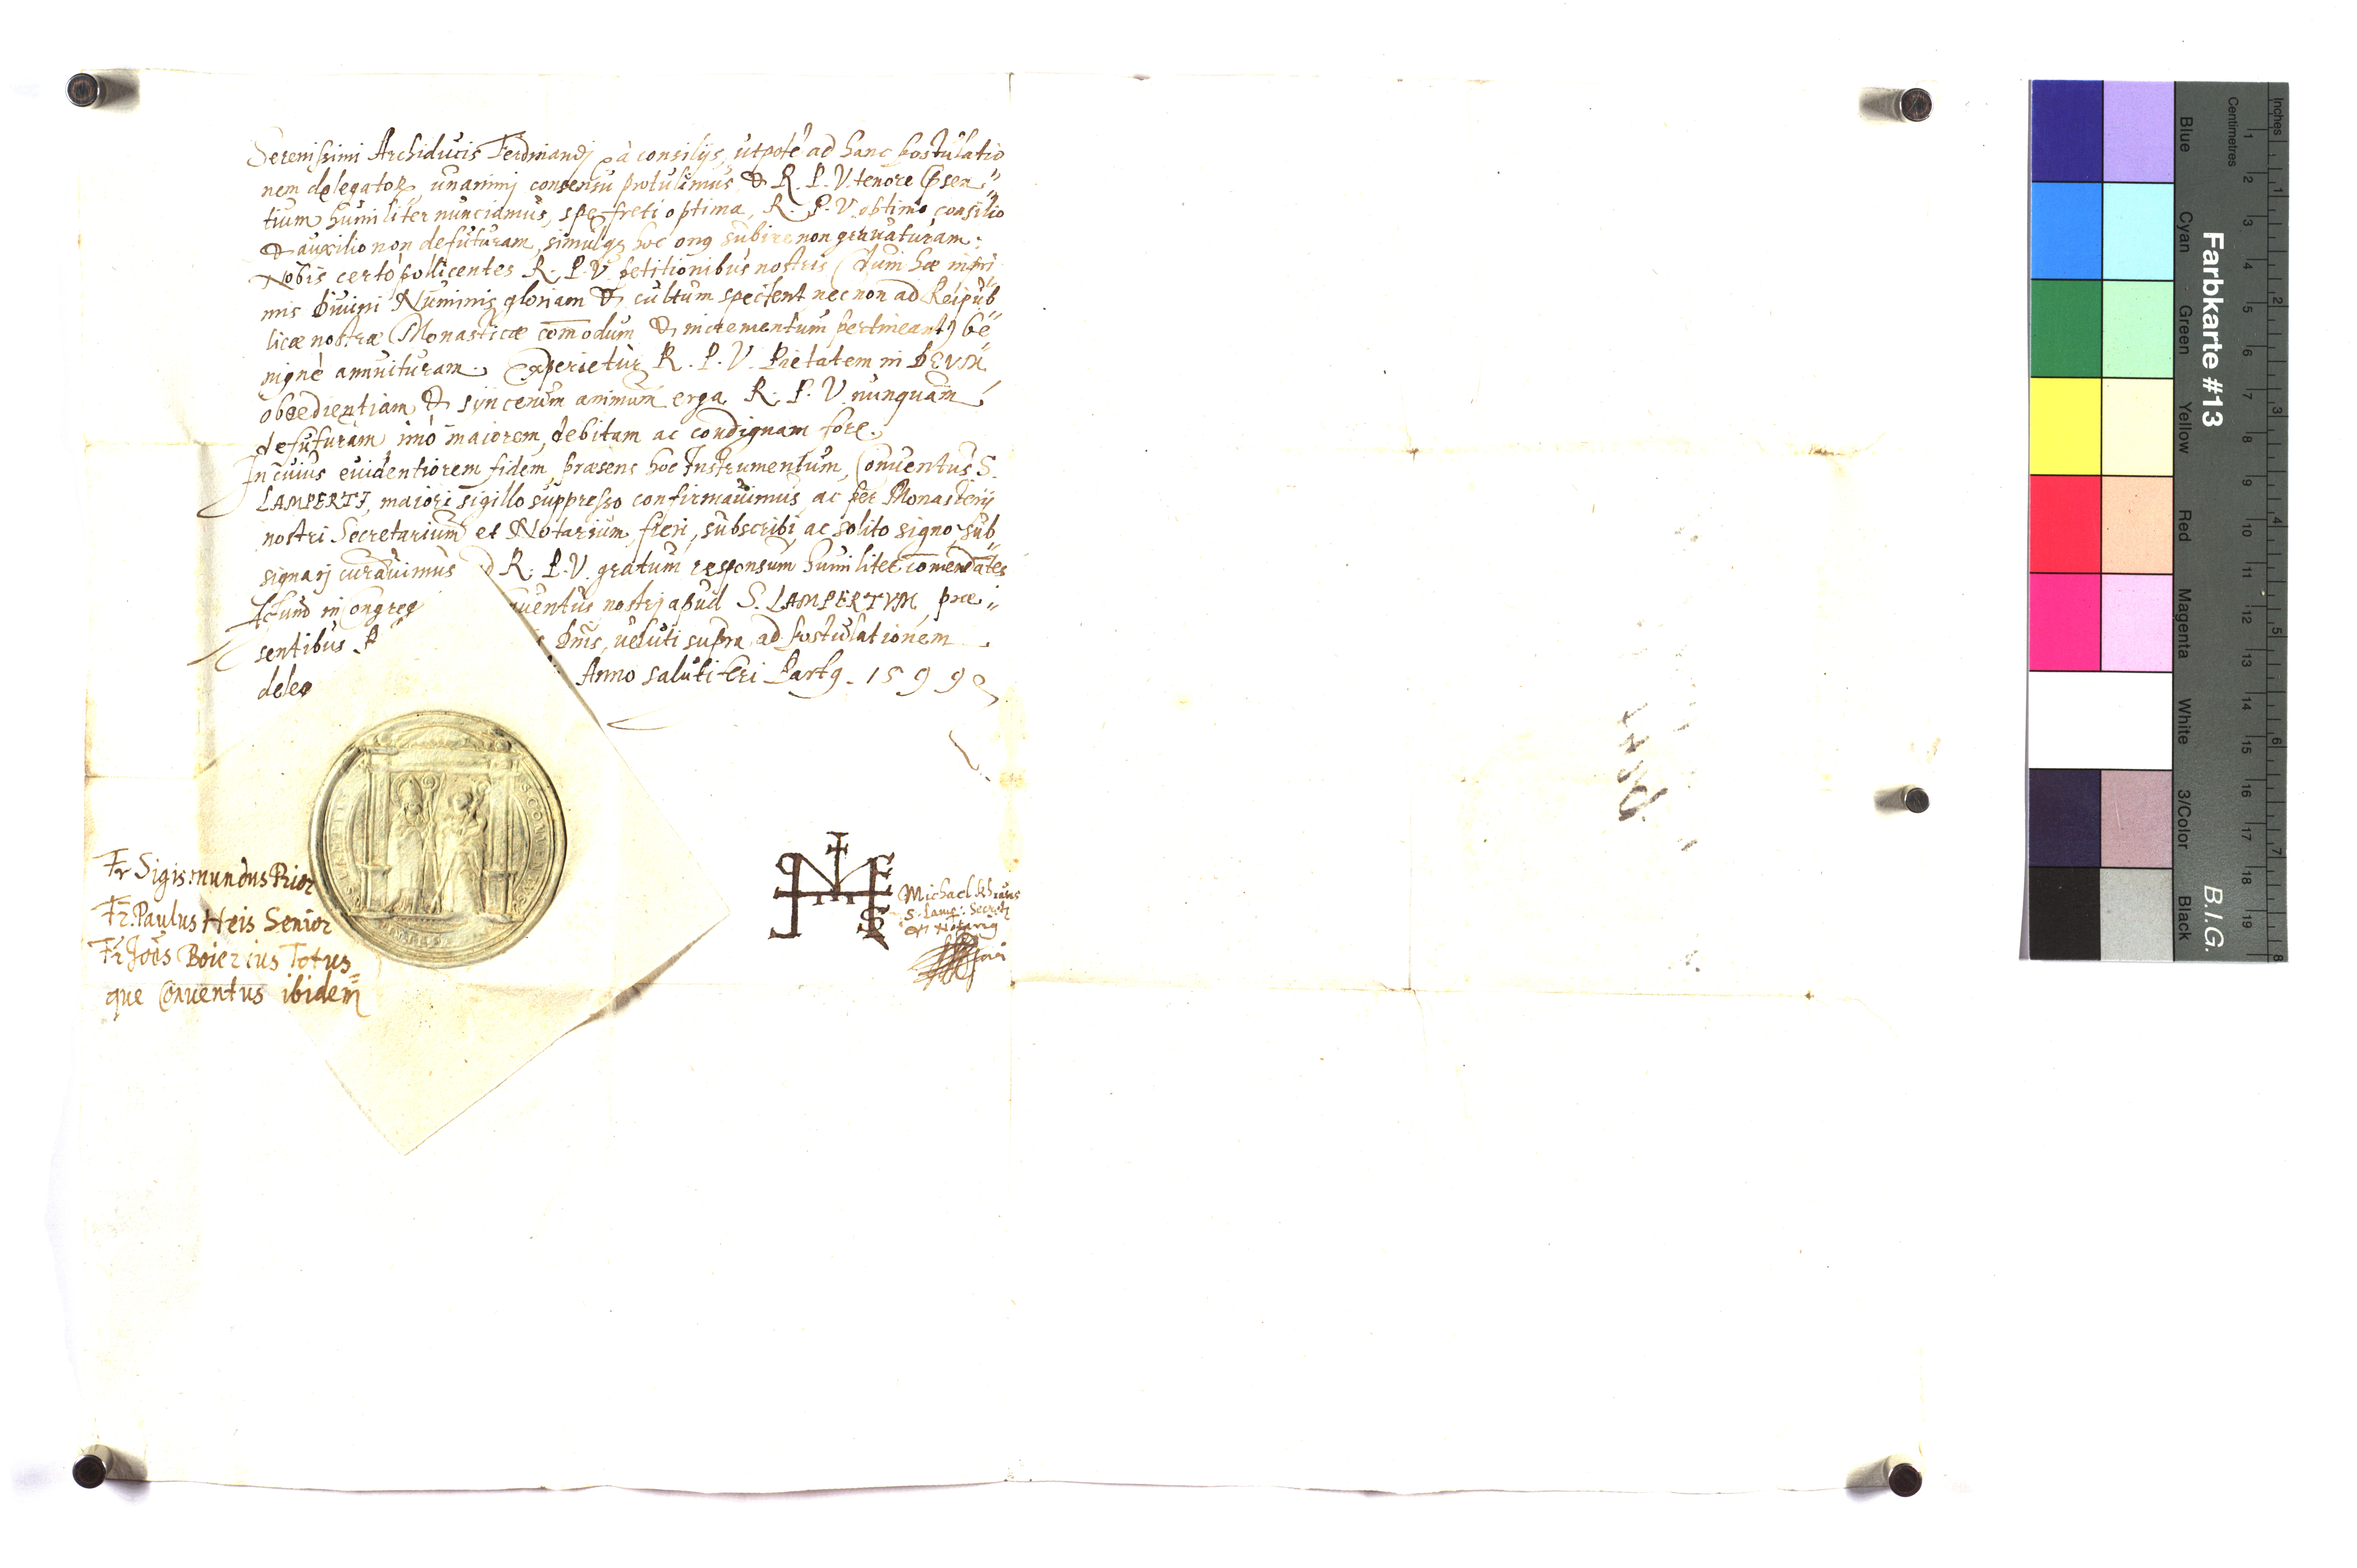 Serenissimi Archiducis Ferdinandj à consilijs, utpote ad hanc postulatio
nem delegatos, unanimj consensu protulimus, & R. P. V. tenore psen„
tium humiliter nunciamus, spe freti optima, R. P. V. optimo consilio
& auxilio non defuturam, simulqz hoc on9 subire non grauaturam:
Nobis certò pollicentes R. P. V. petitionibus nostris (dum hæ inpri
mis diuini Numinis gloriam & cultum spectent nec non ad Reipub„
licæ nostræ Monasticæ comodum & incrementum pertineant) be„
nignè annuituram. Experietur R. P. V. Pietatem in DEVM,
obœdientiam & syncerum animum erga R. P. V. nunquam
defuturam imò maiorem, debitam ac condignam fore.
In cuius euidentiorem fidem, præsens hoc Instrumentum, Conuentus S.
LAMPERTJ, maiori sigillo suppresso confirmauimus, ac per Monasterij
nostri Secretarium et Notarium fieri, subscribi, ac solito signo sub„
signarj curauimus R. P. V. gratum responsum humiliter comendates
Actum in Congreg uentus nostrj apud S. LAMPERTVM præ„
sentibus dnis, ueluti supra ad postulationem
deleg Anno salutiferi Part9. 1599
Fr Sigismundus Prior
Fr. Paulus Heis Senior
Fr Joes Boierius Totus„
que Conuentus ibidem
Michael
S. Lamp: Secret
et Notari9
Farbkarte #13
B.I.G.
Inches
Centimetres
1 2 3 4 5 6 7 8
1 2 3 4 5 6 7 8 9 10 11 12 13 14 15 16 17 18 19
Blue
Cyan
Green
Yellow
Red
Magenta
White
3/Color
Black